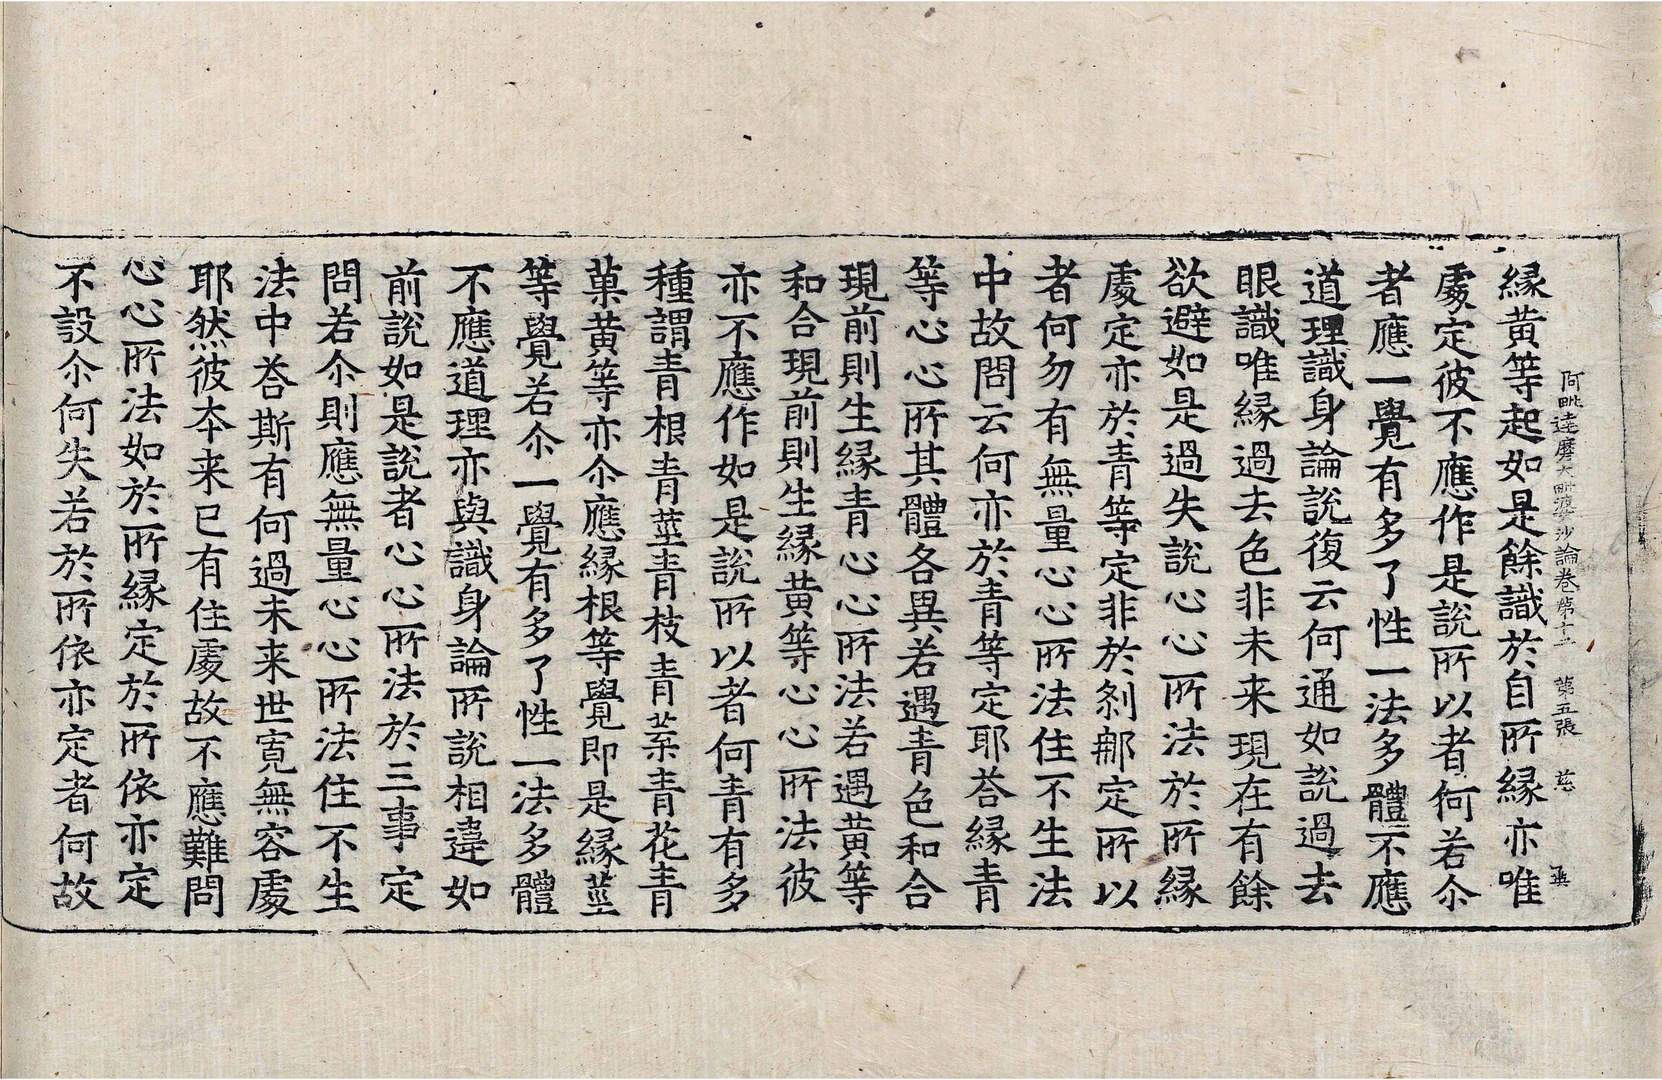 阿毗達磨大毗婆沙論卷第十二 第五張 慈
緣黃等起如是餘識於自所緣亦唯
處定彼不應作是說所以者何若尒
者應一覺有多了性一法多體不應
道理識身論說復云何通如說過去
眼識唯緣過去色非未来現在有餘
欲避如是過失說心心所法於所緣
處定亦於青等定非於剎那定所以
者何勿有無量心心所法住不生法
中故問云何亦於青等定耶荅緣青
等心心所其體各異若遇青色和合
現前則生緣青心心所法若遇黃等
和合現前則生緣黃等心心所法彼
亦不應作如是說所以者何青有多
種謂青根青莖青枝青葉青花青
菓黃等亦尒應緣根等覺即是緣莖
等覺若尒一覺有多了性一法多體
不應道理亦與識身論所說相違如
前說如是說者心心所法於三事定
問若尒則應無量心心所法住不生
法中荅斯有何過未来世寬無容處
耶然彼本来已有住處故不應難問
心心所法如於所緣定於所依亦定
不設尒何失若於所依亦定者何故